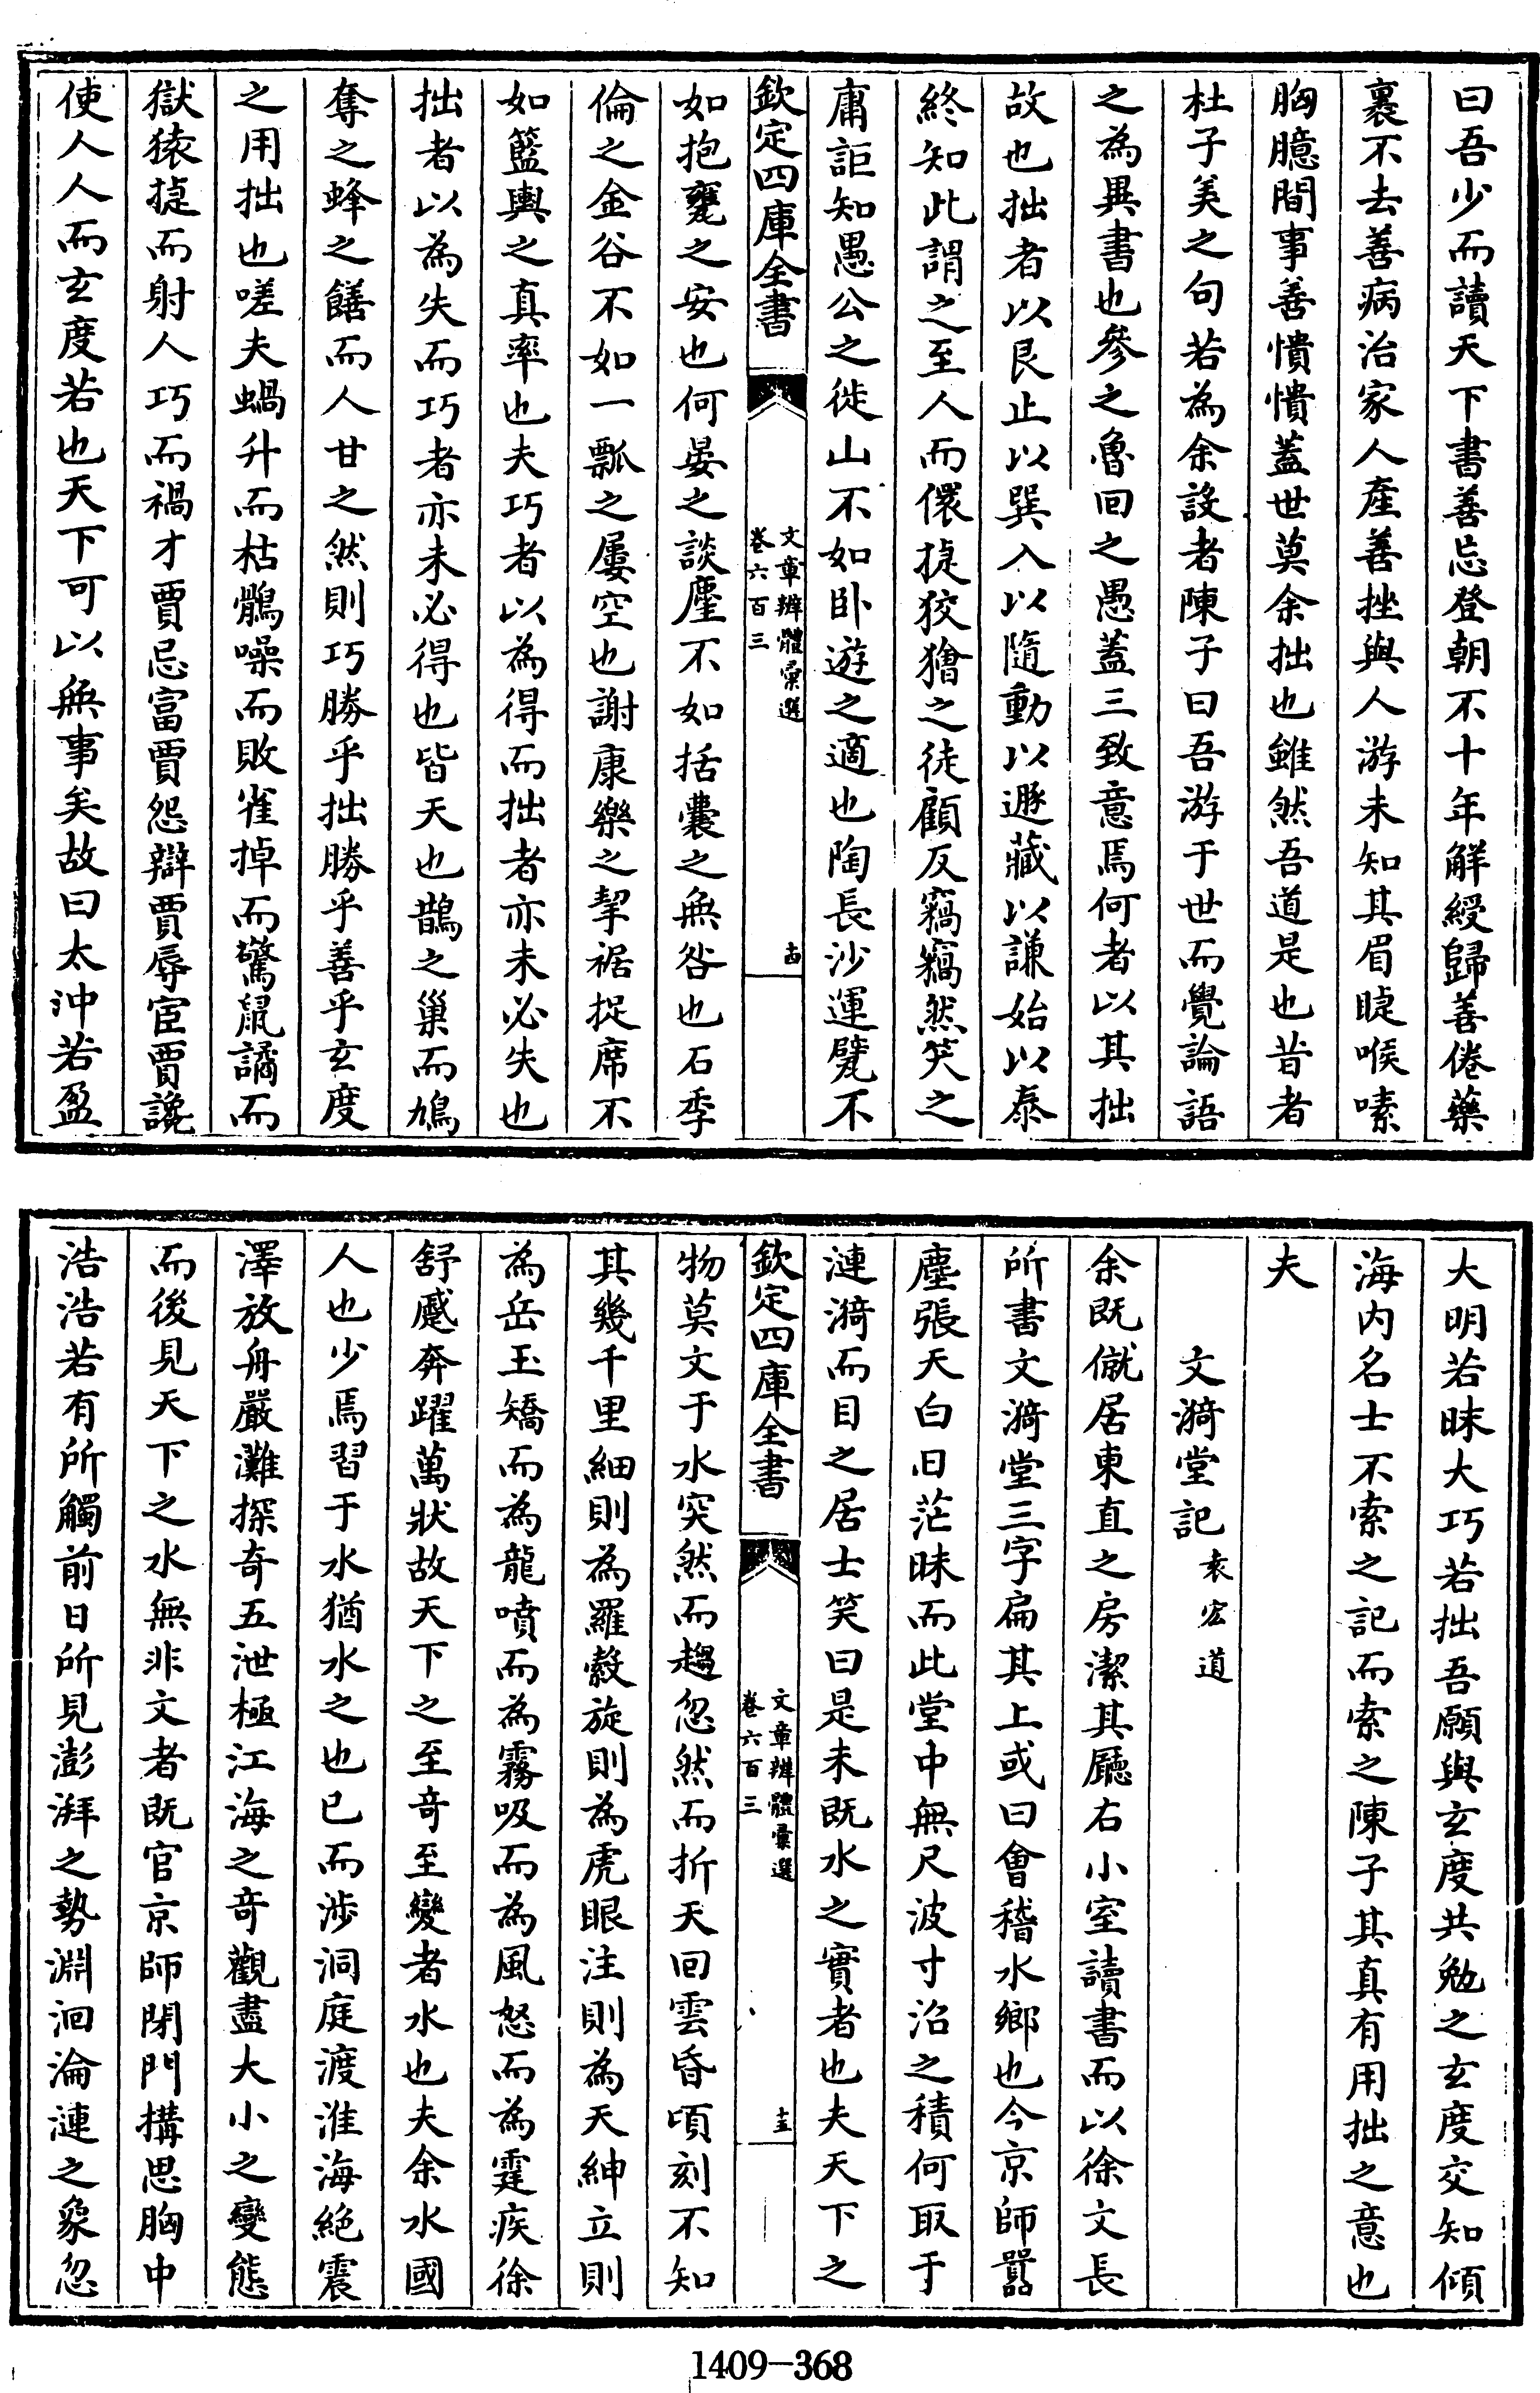 曰吾少而讀天下書善忘登朝不十年解綬歸善倦藥
裹不去善病治家人產善挫與人游未知其眉睫喉嗉
胸臆間事善憒憒蓋世莫余拙也雖然吾道是也昔者
杜子美之句若為余設者陳子曰吾游于世而覺論語
之為異書也參之魯回之愚蓋三致意焉何者以其拙
故也拙者以艮止以巽入以隨動以遯藏以謙始以泰
終知此謂之至人而儇捷狡獪之徒顧反竊竊然笑之
庸詎知愚公之徙山不如卧遊之適也陶長沙運甓不
欽定四庫全書
文章辨體彚選
卷六百三
十四
如抱甕之安也何晏之談麈不如括囊之無咎也石季
倫之金谷不如一瓢之屢空也謝康樂之挈裾捉席不
如籃輿之真率也夫巧者以為得而拙者亦未必失也
拙者以為失而巧者亦未必得也皆天也鵲之巢而鳩
奪之蜂之饍而人甘之然則巧勝乎拙勝乎善乎玄度
之用拙也嗟夫蝸升而枯鶻噪而敗雀掉而驚鼠譎而
獄猿㨗而射人巧而禍才賈忌富賈怨辯賈辱宦賈讒
使人人而玄度若也天下可以無事矣故曰太沖若盈
大明若昧大巧若拙吾願與玄度共勉之玄度交知傾
海内名士不索之記而索之陳子其真有用拙之意也
夫
文漪堂記袁宏道
余既僦居東直之房潔其廳右小室讀書而以徐文長
所書文漪堂三字扁其上或曰會稽水鄉也今京師嚻
塵張天白日茫昧而此堂中無尺波寸沼之積何取于
漣漪而目之居士笑曰是未既水之實者也夫天下之
欽定四庫全書
文章辨體彚選
卷六百三
十五
物莫文于水突然而趨忽然而折天回雲昏頃刻不知
其幾千里細則為羅縠旋則為虎眼注則為天紳立則
為岳玉矯而為龍噴而為霧吸而為風怒而為霆疾徐
舒蹙奔躍萬狀故天下之至奇至變者水也夫余水國
人也少焉習于水猶水之也已而涉洞庭渡淮海絕震
澤放舟嚴灘探奇五泄極江海之奇觀盡大小之變態
而後見天下之水無非文者既官京師閉門搆思胸中
浩浩若有所觸前日所見澎湃之勢淵洄淪漣之象忽
1409-368